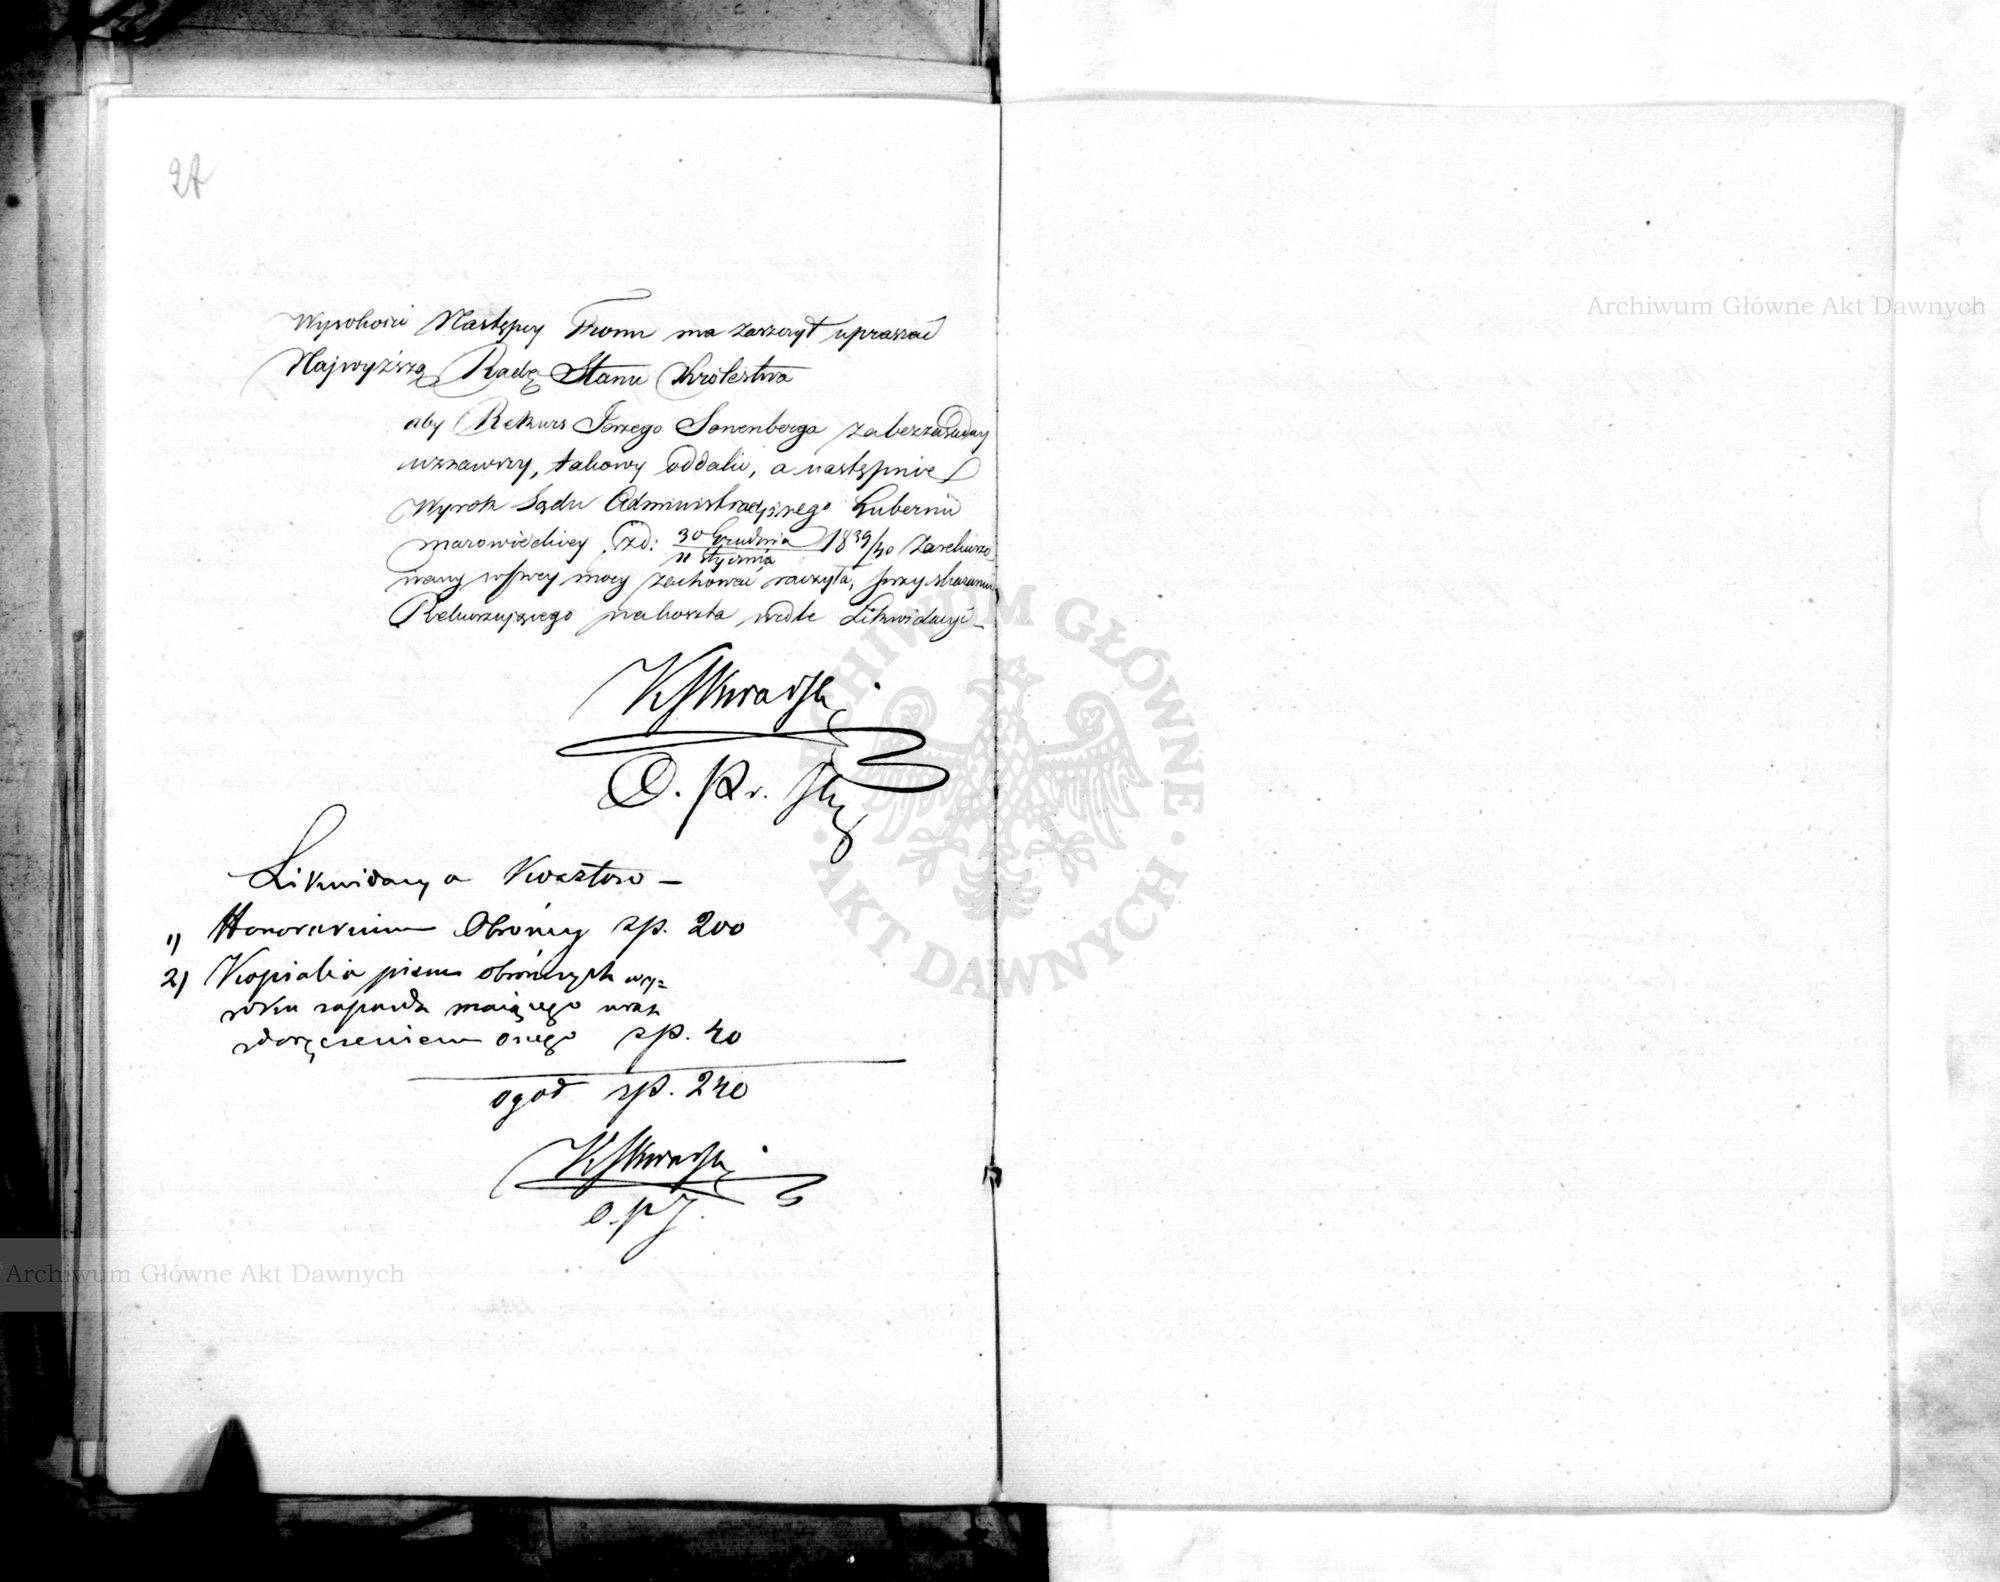 27
Wysokości Następcy Tronu ma zaszczyt upraszać
Najwyższą Radę Stanu Królestwa
aby Rekurs Jerzego Sonenberga za bezzasadny
uznawszy, takowy oddalić, a następnie
Wyrok Sądu Administracyjnego Gubernii
Mazowieckiey z d: 30 Grudnia / 11 Stycznia 1839/40 zarekurso
wany w swey mocy zachować raczyła, przy skazaniu
Rekurzującego na koszta wedle Likwidacyi
O. Pr.
Likwidacya Kosztów
1) Honorarium Obrońcy zp. 200
2) Kopialia pism obrończych wy=
roku zapaść maiącego wraz
z doręczeniem onego zp. 40
ogół zp. 240
O. P.
Archiwum Główne Akt Dawnych
Archiwum Główne Akt Dawnych
ARCHIWUM GŁÓWNE · AKT DAWNYCH ·